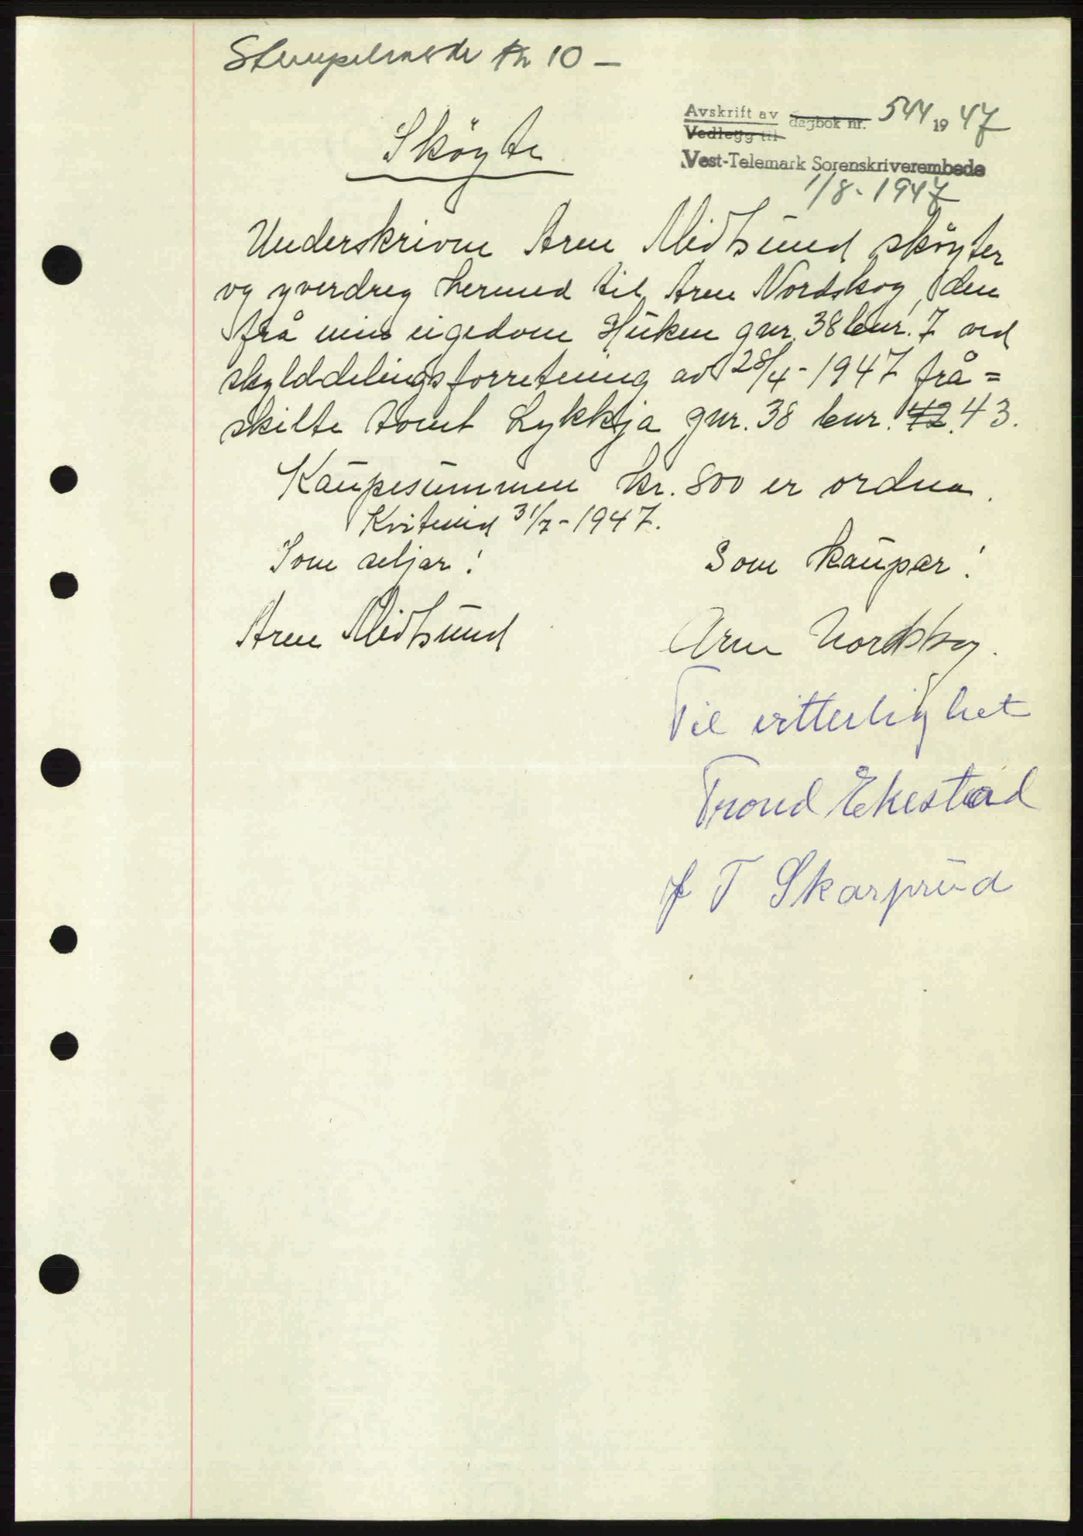 Stempelmerke kr 10 –
Avskrift av dagbok nr. 544 1947
Vedlegg til
Vest-Telemark Sorenskriverembede
1/8-1947
Sköyte
Underskrivne Arne Midtsund sköyter
og yverdreg hermed til Arne Nordskog den
frå min eigedom Huken gnr. 38 bnr. 7 ved
skylddelingsforretning av 28/4-1947 frå=
skilte tomt Lykkja gnr. 38 bnr. 42. 43.
Kaupesummen kr. 800 er ordna.
Kviteseid 31/7-1947.
Som seljar! Som kaupar!
Arne Midtsund Arne Nordskog.
Til vitterlighet
Trond Ekestad
T Skarprud